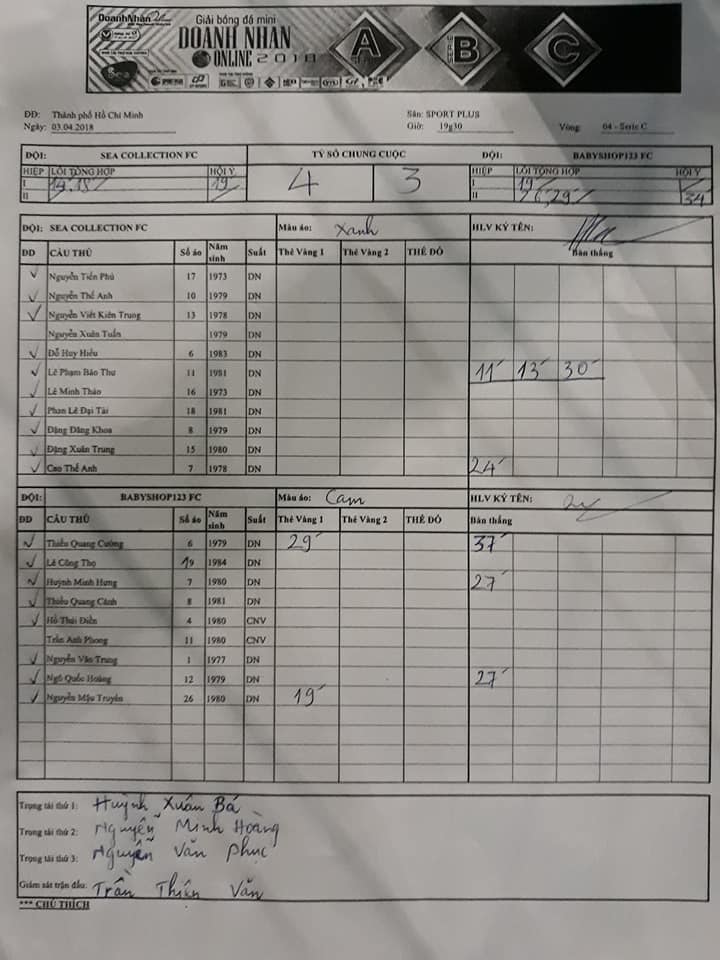 DoanhNhân
Giải bóng đá mini
DOANH NHÂN
ONLINE 2018
A B C
ĐĐ: Thành phố Hồ Chí Minh Sân: SPORT PLUS
Ngày: 03.04.2018 Giờ: 19g30 Vòng: 04 - Serie C
ĐỘI: SEA COLLECTION FC TỶ SỐ CHUNG CUỘC ĐỘI: BABYSHOP123 FC
HIỆP LỖI TỔNG HỢP HỘI Ý 4 3 HIỆP LỖI TỔNG HỢP HỘI Ý
I 19' I 19'
II II 29' 34'
ĐỘI: SEA COLLECTION FC Màu áo: Xanh HLV KÝ TÊN:
DD CẦU THỦ Số áo Năm sinh Suất Thẻ Vàng 1 Thẻ Vàng 2 THẺ ĐỎ Bàn thắng
Nguyễn Tiến Phú 17 1973 DN
Nguyễn Thế Anh 10 1979 DN
Nguyễn Viết Kiên Trung 13 1978 DN
Nguyễn Xuân Tuấn 1979 DN
Đỗ Huy Hiếu 6 1983 DN
Lê Phạm Bảo Thu 11 1981 DN 11' 13' 30'
Lê Minh Thảo 16 1973 DN
Phan Lê Đại Tài 18 1981 DN
Đặng Đăng Khoa 8 1979 DN
Đặng Xuân Trung 15 1980 DN
Cao Thế Anh 7 1978 DN 24'
ĐỘI: BABYSHOP123 FC Màu áo: Cam HLV KÝ TÊN:
DD CẦU THỦ Số áo Năm sinh Suất Thẻ Vàng 1 Thẻ Vàng 2 THẺ ĐỎ Bàn thắng
Thiều Quang Cường 6 1979 DN 29' 37'
Lê Công Thọ 19 1984 DN
Huỳnh Minh Hưng 7 1980 DN 27'
Thiều Quang Cảnh 8 1981 DN
Hồ Thái Điền 4 1980 CNV
Trần Anh Phong 11 1980 CNV
Nguyễn Văn Trung 1 1977 DN
Ngô Quốc Hoàng 12 1979 DN 27'
Nguyễn Mậu Truyền 26 1980 DN 19'
Trọng tài thứ 1: Huỳnh Xuân Bá
Trọng tài thứ 2: Nguyễn Minh Hoàng
Trọng tài thứ 3: Nguyễn Văn Phục
Giám sát trận đấu: Trần Thiên Văn
*** CHÚ THÍCH